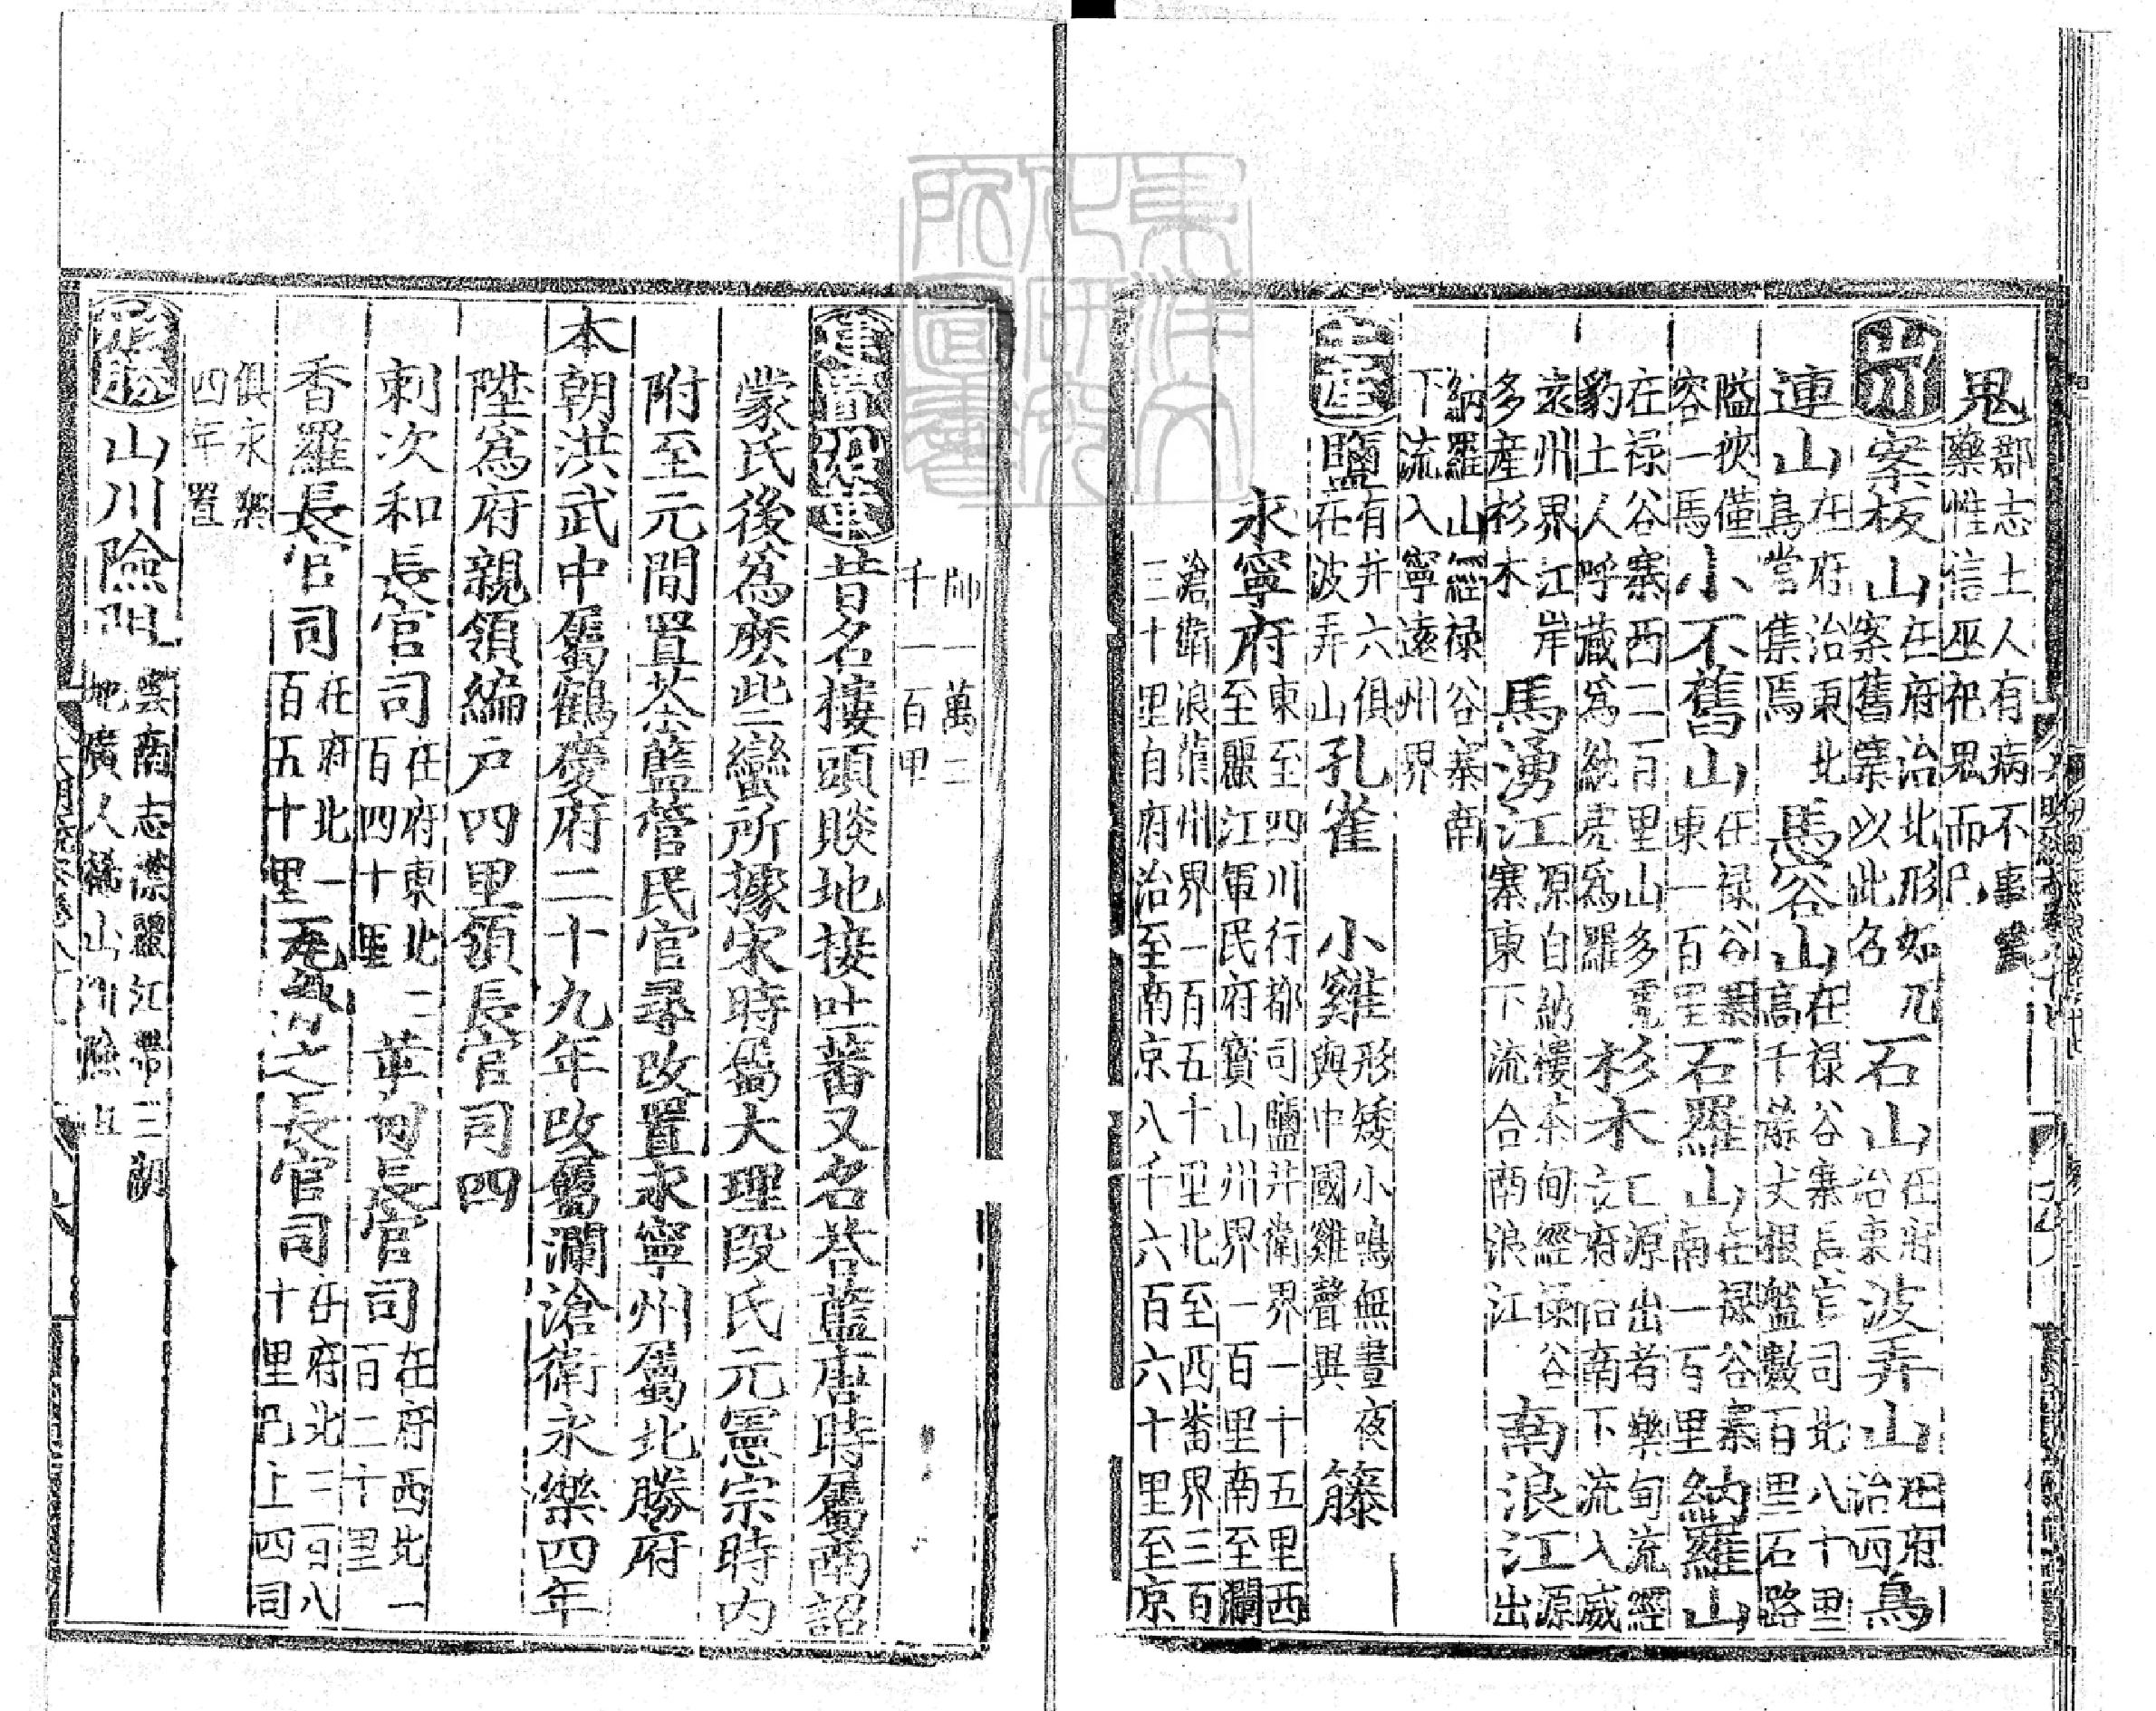 鬼郡志土人有病不事醫
藥惟信巫祀鬼而已
山川案板山在府治北形如几
案舊寨以此名石山在府
治東波弄山在府
治西鳥
連山在府治東北
鳥嘗集焉馬容山在祿谷寨長官司北八十里
高千餘丈根盤數百里石路
隘狹僅
容一馬小不舊山在祿谷寨
東一百里石羅山在祿谷寨
南一百里納羅山
在祿谷寨西二百里山多虎
豹土人呼藏為納虎為羅杉木江源出者樂甸流經
府治南下流入威
遠州界江岸
多產杉木馬湧江源自納樓茶甸經祿谷
寨東下流合南浪江南浪江源
出
納羅山經祿谷寨南
下流入寧遠州界
土產鹽有井六俱
在波弄山孔雀 小雞形矮小鳴無晝夜
與中國雞聲異籐
永寧府東至四川行都司鹽井衛界一十五里西
至麗江軍民府寶山州界一百里南至瀾
滄衛浪蕖州界一百五十里北至西番界三百
三十里自府治至南京八千六百六十里至京
師一萬二
千一百里
建置沿革昔名樓頭賧地接吐蕃又名荅藍唐時屬南詔
蒙氏後為麽些蠻所據宋時屬大理段氏元憲宗時内
附至元間置荅藍管民官尋改置永寧州屬北勝府
本朝洪武中屬鶴慶府二十九年改屬瀾滄衛永樂四年
陞為府親領編户四里領長官司四
刺次和長官司在府東北二
百四十里革甸長官司在府西北一
百二十里
香羅長官司在府北一
百五十里瓦魯之長官司在府北二百八
十里已上四司
俱永樂
四年置
形勝山川險阻雲南志襟疆江帶三湖
地廣人稀山川險阻